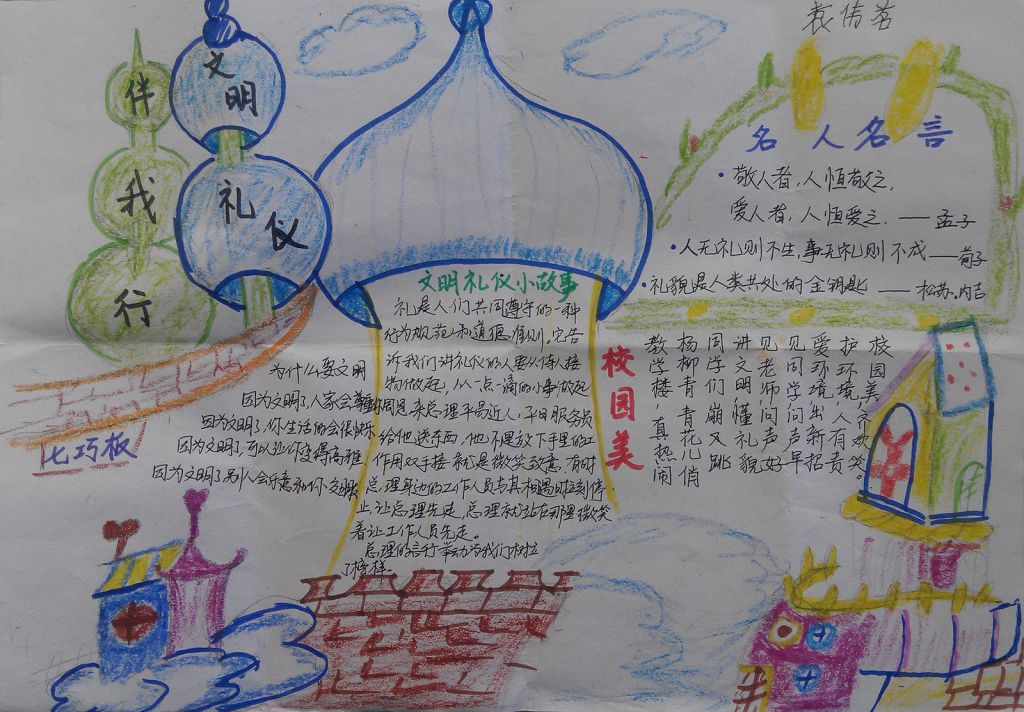 伴我行
文明
礼仪
名人名言
·敬人者,人恒敬之,
爱人者,人恒爱之. ——孟子
·人无礼则不生,事无礼则不成——荀子
·礼貌是人类共处的金钥匙 ——松苏.内吉
文明礼仪小故事
礼是人们共同遵守的一种
行为规范和道德准则。它告
诉我们讲礼仪的人要从待人接
物做起,从一点一滴的小事做起
周恩来总理平易近人,平日服务员
给他送东西,他不是放下手里的工
作用双手接就是微笑致意,有时
总理身边的工作人员与其相遇时立刻停
止让总理先走,总理就站在那里微笑
着让工作人员先走。
总理的言行举动为我们树立
了榜样。
为什么要文明
因为文明了,人家会尊重你
因为文明了,你生活的会很快乐
因为文明了,可以让你变得高雅
因为文明了,别人会乐意和你
七巧板
校园美
校园美,齐欢笑。
护环境,人有责
爱环境,出新招
见同学问声早
见老师问声好
讲文明懂礼貌
同学们崩又跳
杨柳青青花儿俏
教学楼,真热闹